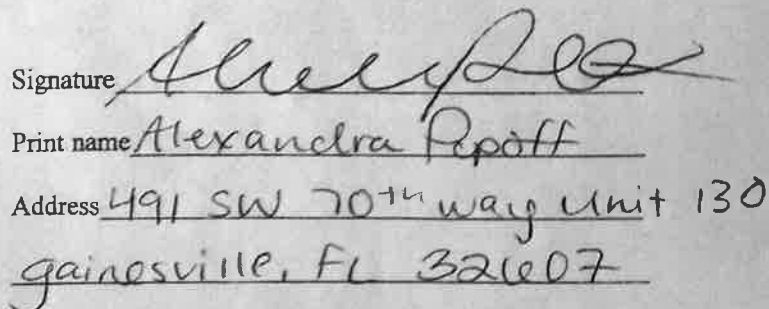 Signature
Print name Alexandra Popoff
Address 491 SW 70th way unit 130
gainesville, FL 32607